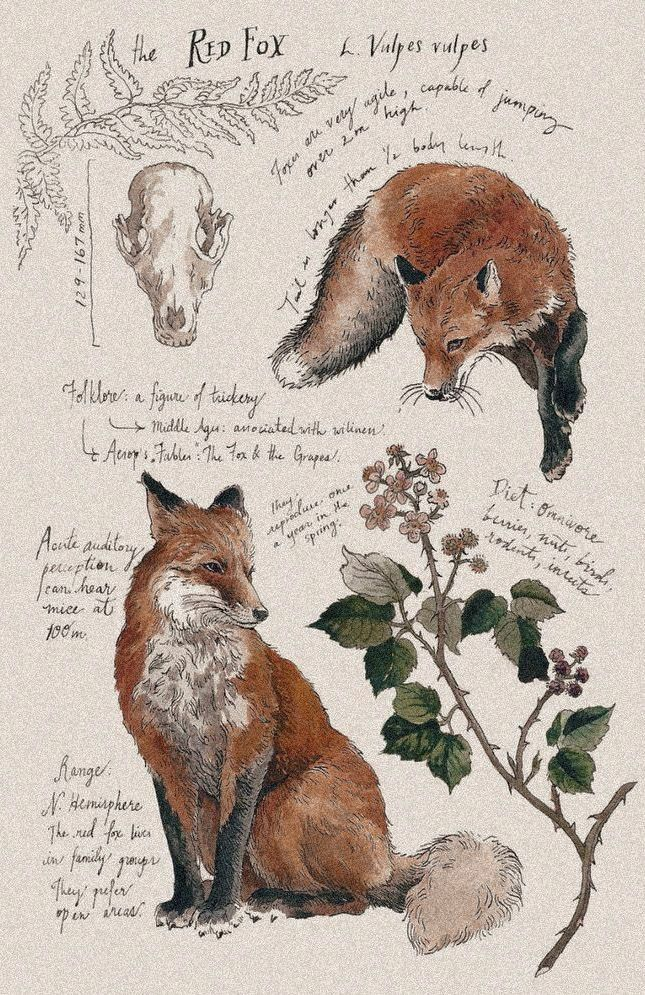 the RED FOX L. Vulpes vulpes
Foxes are very agile, capable of jumping
over 2m high.
Tail is longer than ½ body length.
129-167 mm
Folklore: a figure of trickery
Middle Ages: associated with wiliness
Aesop's "Fables": The Fox & the Grapes.
They
reproduce once
a year in the
spring.
Diet: Omnivore
berries, nuts, birds,
rodents, insects
Acute auditory
perception
can hear
mice at
100m.
Range:
N. Hemisphere
The red fox lives
in family groups
They prefer
open areas.